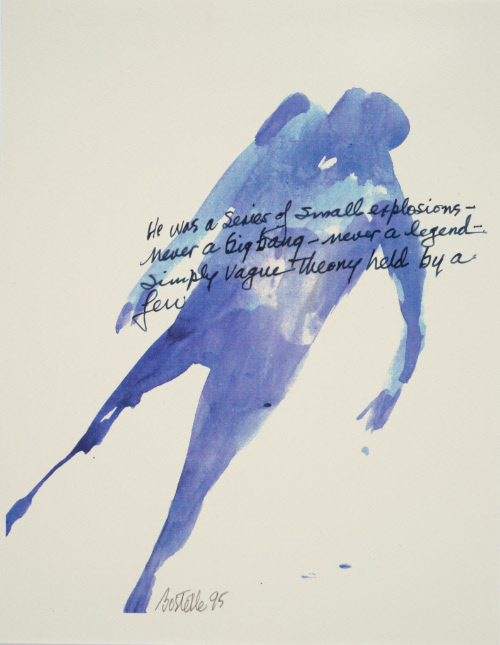 He was a series of small explosions-
never a big bang - never a legend-
simply vague theory held by a
few
Bostelle 95